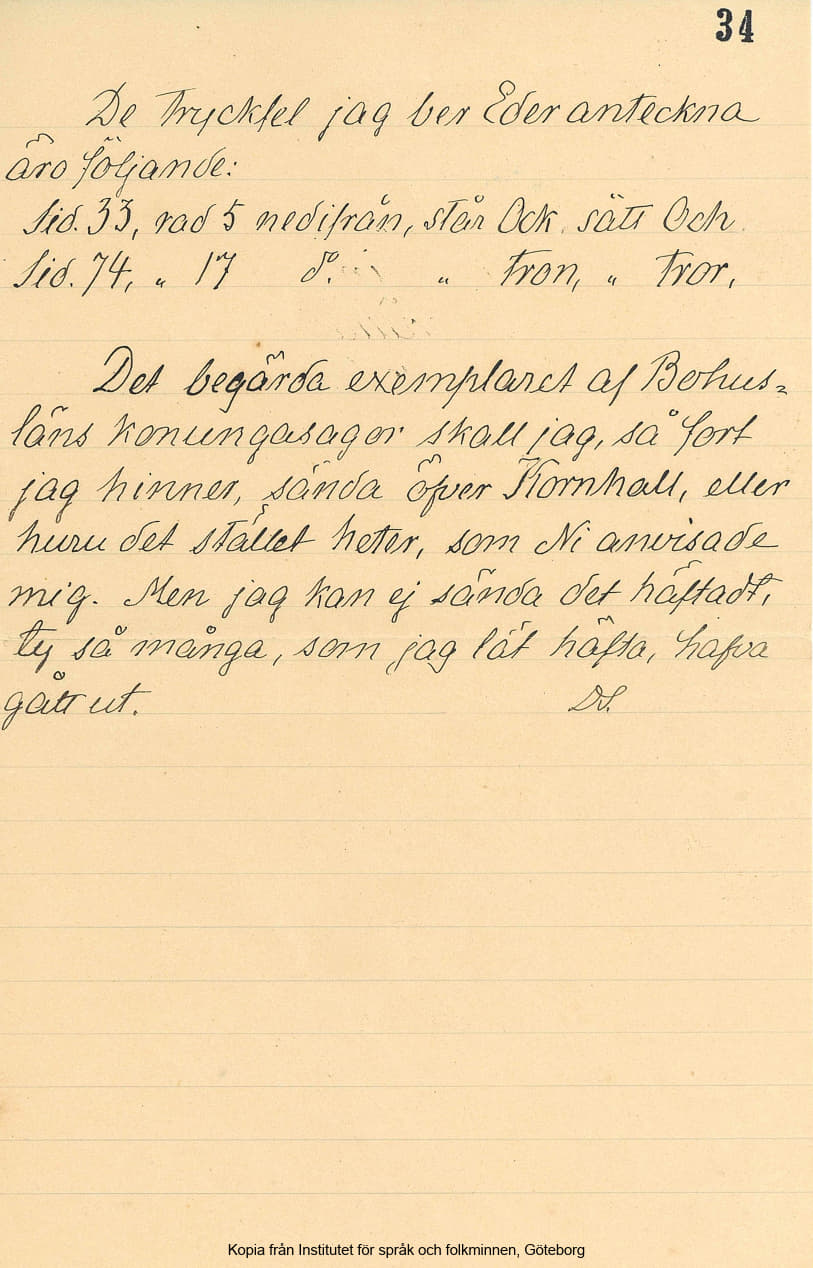 34
De tryckfel jag ber Eder anteckna
äro följande:
Sid. 33, rad 5 nedifrån, står Ock sätt Och
Sid. 74, „ 17 d:o „ tron, „ tror.
Det begärda exemplaret af Bohus=
läns konungasagor skall jag, så fort
jag hinner, sända öfver Kornhall, eller
huru det stället heter, som Ni anvisade
mig. Men jag kan ej sända det häftadt,
ty så många, som jag låt häfta, hafva
gått ut. DS.
Kopia från Institutet för språk och folkminnen, Göteborg